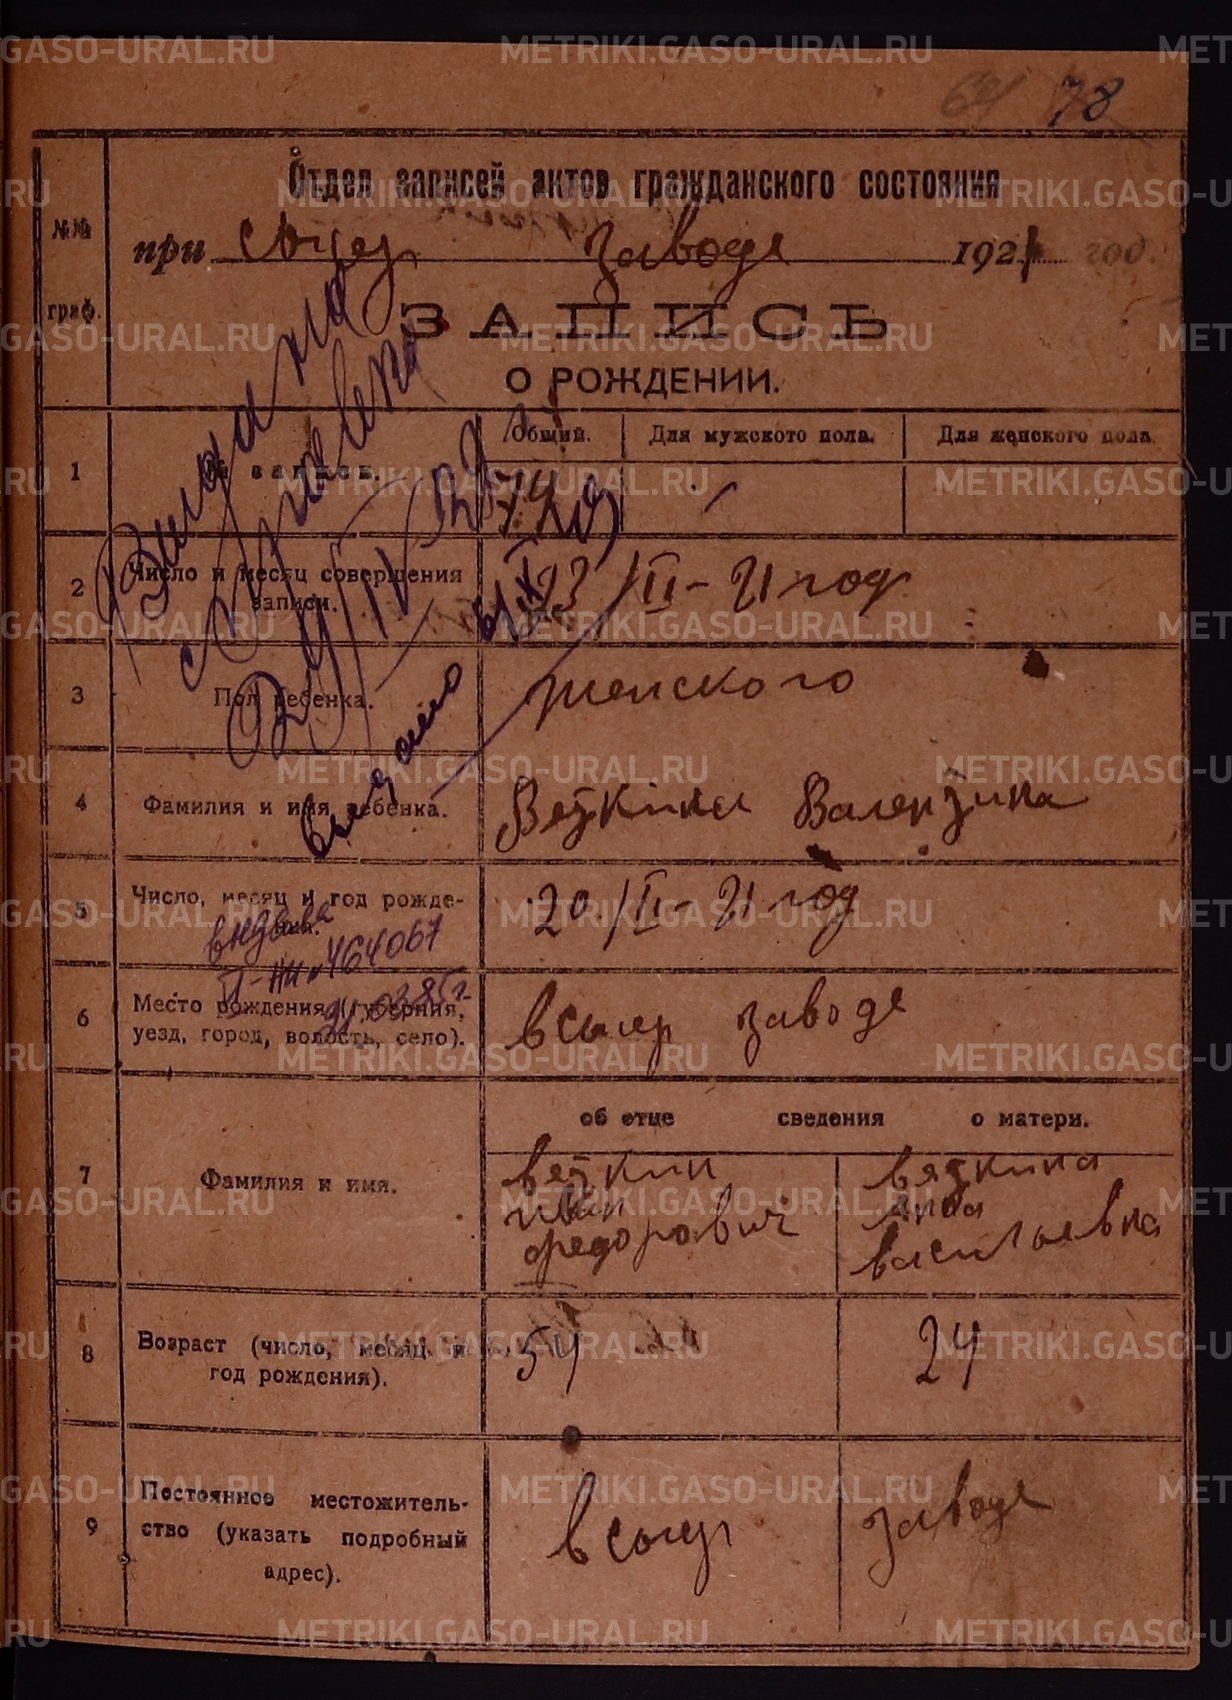 78
Отдел записей актов гражданского состояния
№№ граф.
при заводе 1921 год.
ЗАПИСЬ
О РОЖДЕНИИ.
Общий. Для мужского пола. Для женского пола.
1 № запись. 74
2 Число и месяц совершения записи. 23/II-21 год
3 Пол ребенка. женского
4 Фамилия и имя ребенка. Вяткина Валентина
5 Число, месяц и год рождения. 20/II-21 год
6 Место рождения (губерния, уезд, город, волость, село). заводе
об отце сведения о матери.
7 Фамилия и имя.
Вяткин
Иван
Федорович
Вяткина
Анна
Васильевна
8 Возраст (число, месяц и год рождения). 54 24
9 Постоянное местожительство (указать подробный адрес). заводе
Выдана
справка
выдано
№ 464067
METRIKI.GASO-URAL.RU